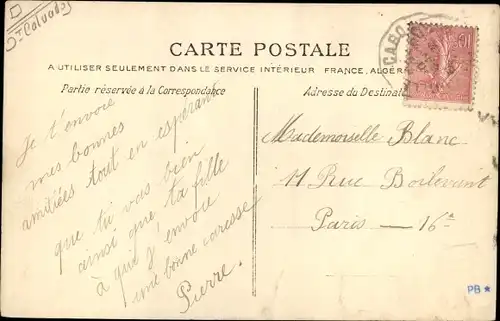 D^t Calvados
CARTE POSTALE
A UTILISER SEULEMENT DANS LE SERVICE INTÉRIEUR FRANCE, ALGÉR
Partie réservée à la Correspondance
Adresse du Destinata
CABO
Je t'envoie
mes bonnes
amitiées tout en espérant
que tu vas bien
ainsi que ta fille
à qui j'envoie
une bonne caresse
Pierre.
Mademoiselle Blanc
11 Rue Boilevent
Paris — 16^e
PB *